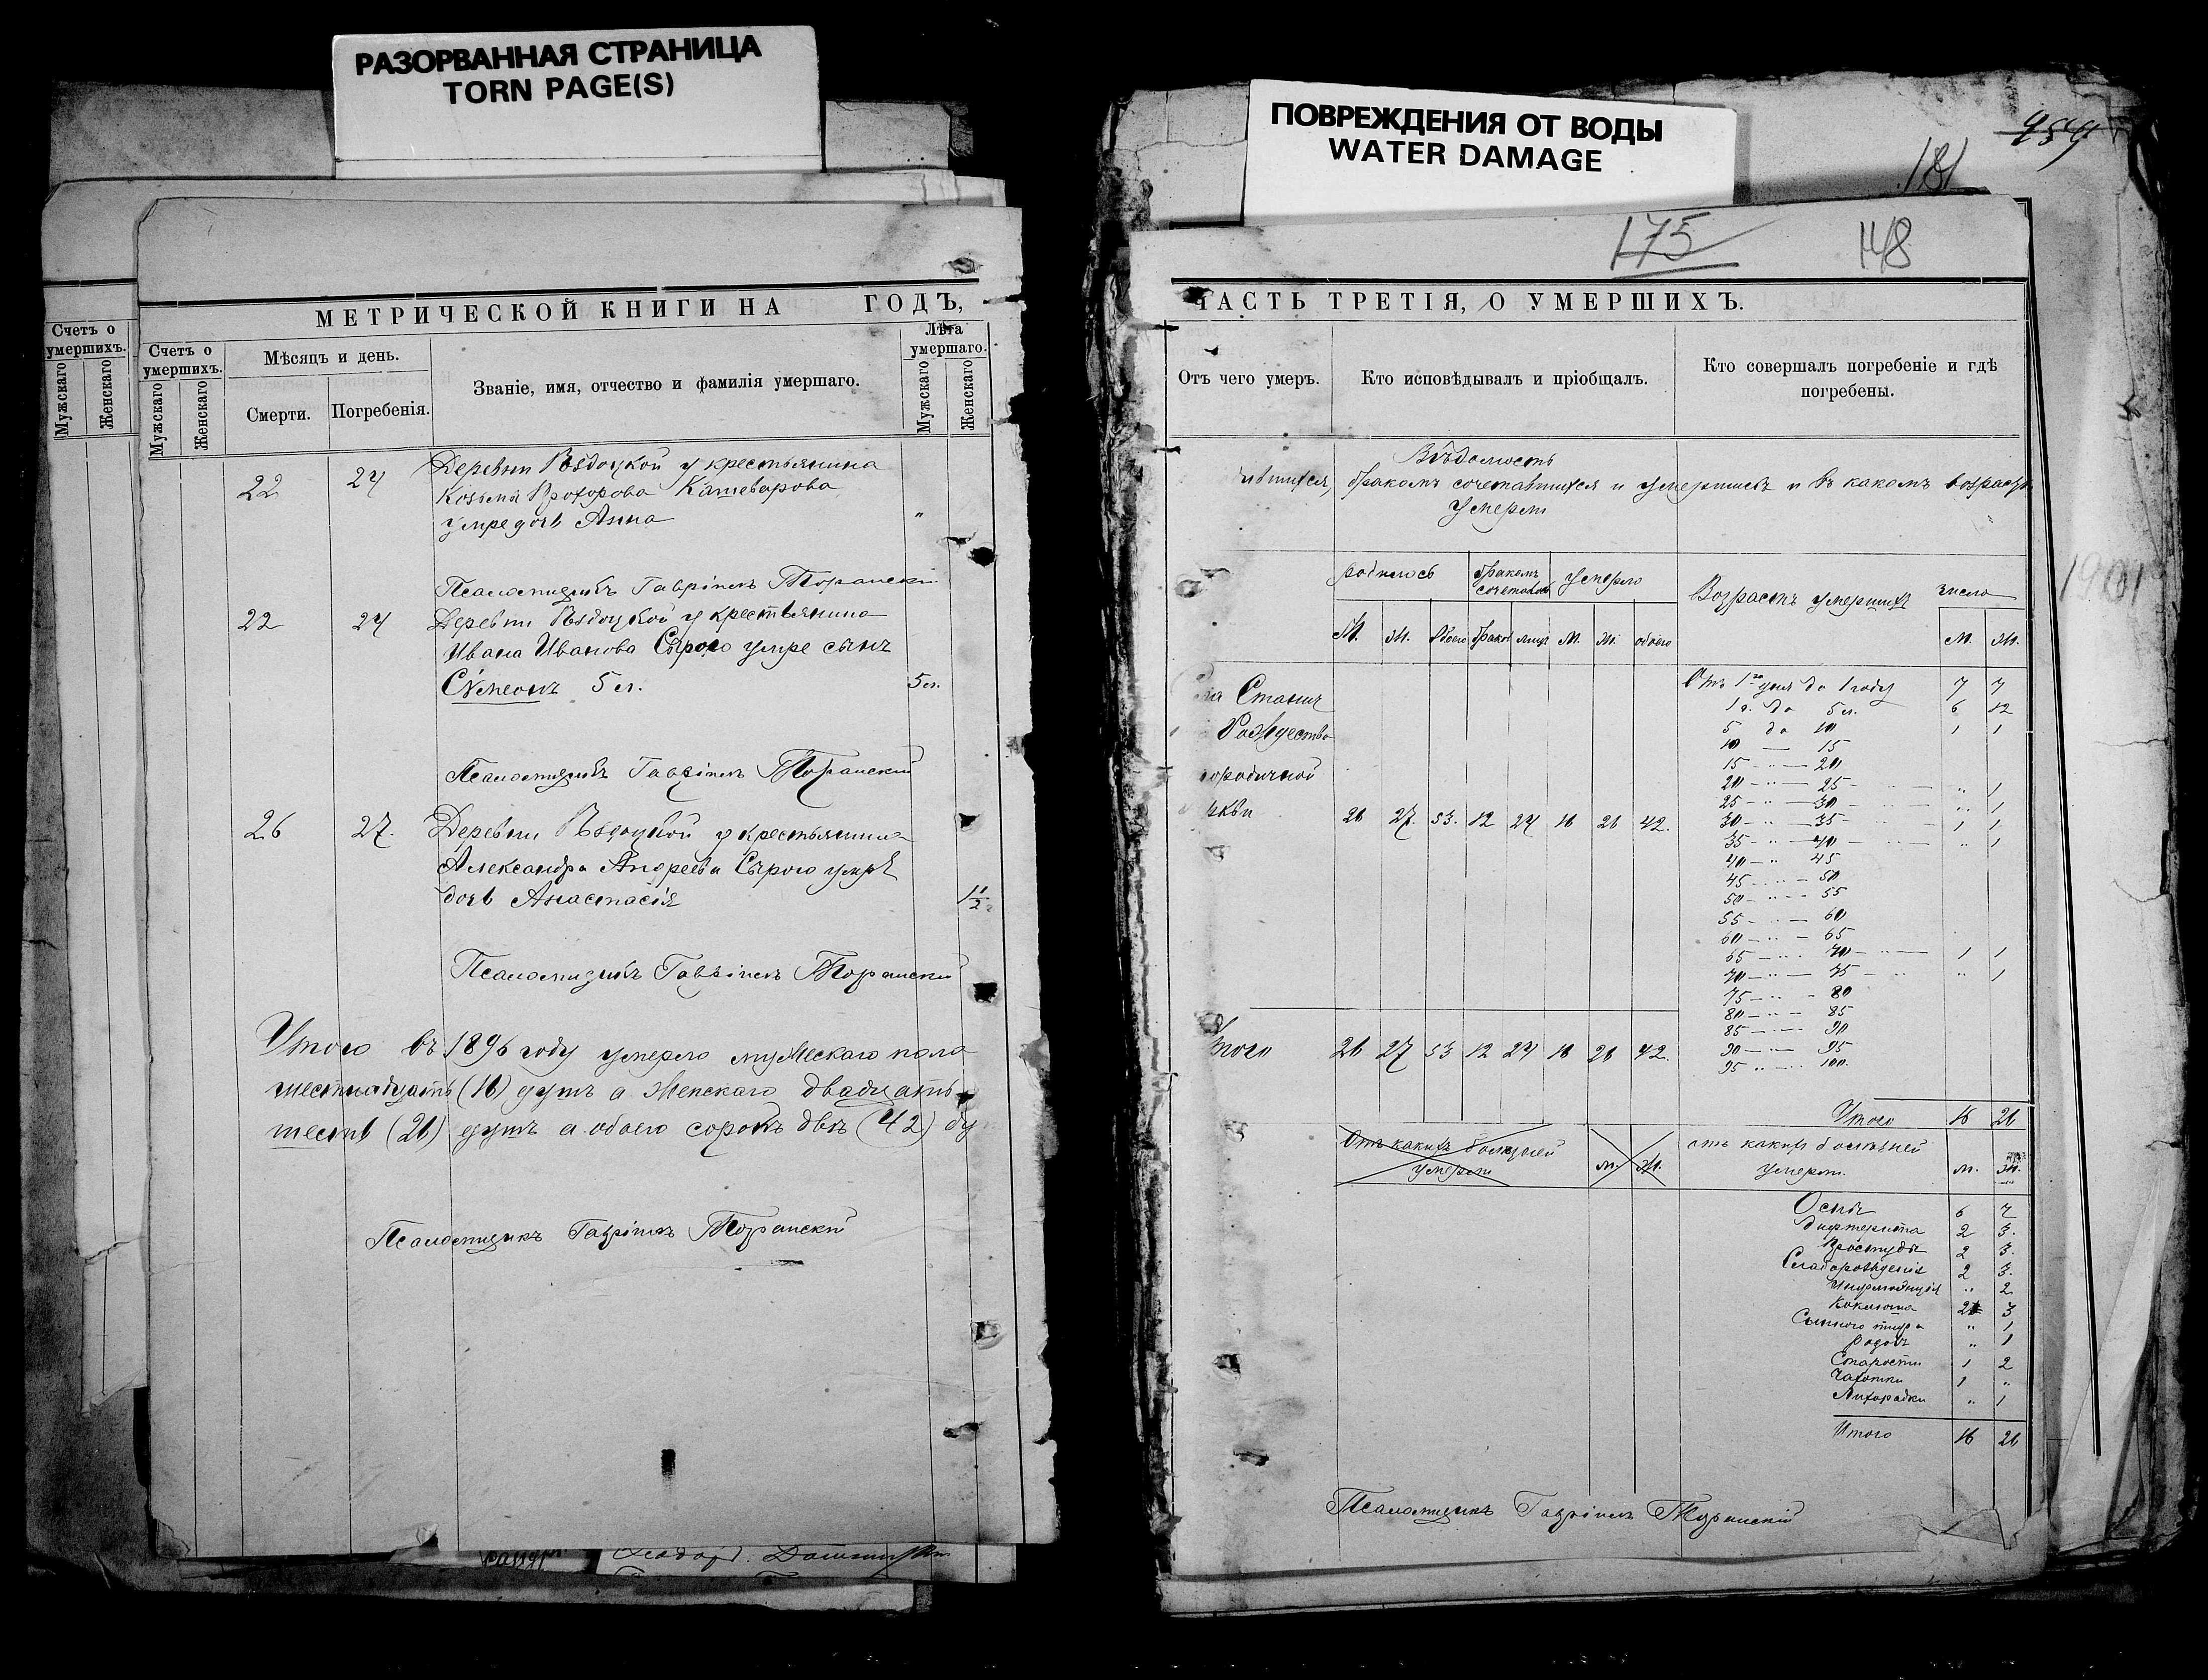 РАЗОРВАННАЯ СТРАНИЦА
TORN PAGE(S)
МЕТРИЧЕСКОЙ КНИГИ НА ГОДЪ,
Счетъ о умершихъ.
Мужскаго
Женскаго
Счетъ о умершихъ.
Мужскаго
Женскаго
Мѣсяцъ и день.
Смерти.
Погребенія.
Званіе, имя, отчество и фамилія умершаго.
Лѣта умершаго.
Мужскаго
Женскаго
22 24 Деревни у крестьянина
Козьмы Прохорова Кашеварова
умре дочь Анна "
Псаломщикъ Гавріилъ
22 24 Деревни у крестьянина
Ивана Иванова Сѣрого умре сынъ
Сѵмеонъ 5 л. 5 л.
Псаломщикъ Гавріилъ
26 27. Деревни у крестьянина
Александра Андреева Сѣрого умре
дочь Анастасія 1 1/2
Псаломщикъ Гавріилъ
Итого въ 1896 году умерло мужескаго пола
шестнадцать (16) душъ а женскаго двадцать
шесть (26) душъ а обоего сорокъ двѣ (42) ду
Псаломщикъ Гавріилъ
ПОВРЕЖДЕНИЯ ОТ ВОДЫ
WATER DAMAGE
181
175 148
ЧАСТЬ ТРЕТІЯ, О УМЕРШИХЪ.
Отъ чего умеръ.
Кто исповѣдывалъ и пріобщалъ.
Кто совершалъ погребеніе и гдѣ погребены.
Вѣдомость
бракомъ сочетавшихся и умершихъ и въ какомъ возрастѣ
умерли
родилось бракомъ сочеталось умерло Возрастъ умершихъ число
М. Ж. Обоего браков лицъ М. Ж. обоего М. Ж.
Отъ 1го дня до 1 году 7 7
1 г. до 5 л. 6 12
5 до 10 1 1
10 — 15
15 - " — 20
20 - " — 25 " 1
25 - " — 30 " 1
30 - " — 35 1 1
35 - " — 40 " 1
40 — " 45
45 - " — 50
50 - " - 55
55 - " — 60
60 — " — 65
65 — " 70 1 1
70 — " — 75 " 1
75 — " - 80
80 — " - 85
85 — " — 90
90 — " — 95
95 " — " 100.
Рождество
26 27. 53. 12 24 16 26 42.
Итого 26 27 53 12 24 16 26 42.
Итого 16 26
Отъ какихъ болѣзней
умерли м. ж.
отъ какихъ болѣзней
умерли м. ж.
Оспы 6 7
Дифтерита 2 3.
Простуды 2 3.
2 3.
" 2
Коклюша 3
Сыпного тифа " 1
Родовъ " 1
Старости 1 2
Чахотки 1 "
Лихорадки " 1
Итого 16 26
Псаломщикъ Гавріилъ
1901